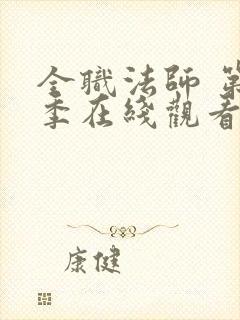 全職法師 第
季在綫觀看
康健